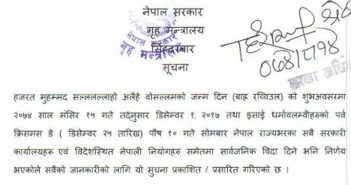 नेपाल सरकार
गृह मन्त्रालय
सिंहदरबार
सूचना
०७४।८।१४
हजरत मुहम्मद सल्लल्लाहो अलैहे वोसल्लमको जन्म दिन (बाह्र रब्बिउल) को शुभअवसरमा
२०७४ साल मंसिर १५ गते तदनुसार डिसेम्बर १, २०१७ तथा इसाई धर्मावलम्बीहरुको पर्व
क्रिसमस डे ( डिसेम्बर २५ तारिख) पौष १० गते सोमबार नेपाल राज्यभरका सबै सरकारी
कार्यालयहरु एवं विदेशस्थित नेपाली नियोगहरु समेतमा सार्वजनिक विदा दिने भनि निर्णय
भएकोले सबैको जानकारीको लागि यो सूचना प्रकाशित / प्रसारित गरिएको छ ।